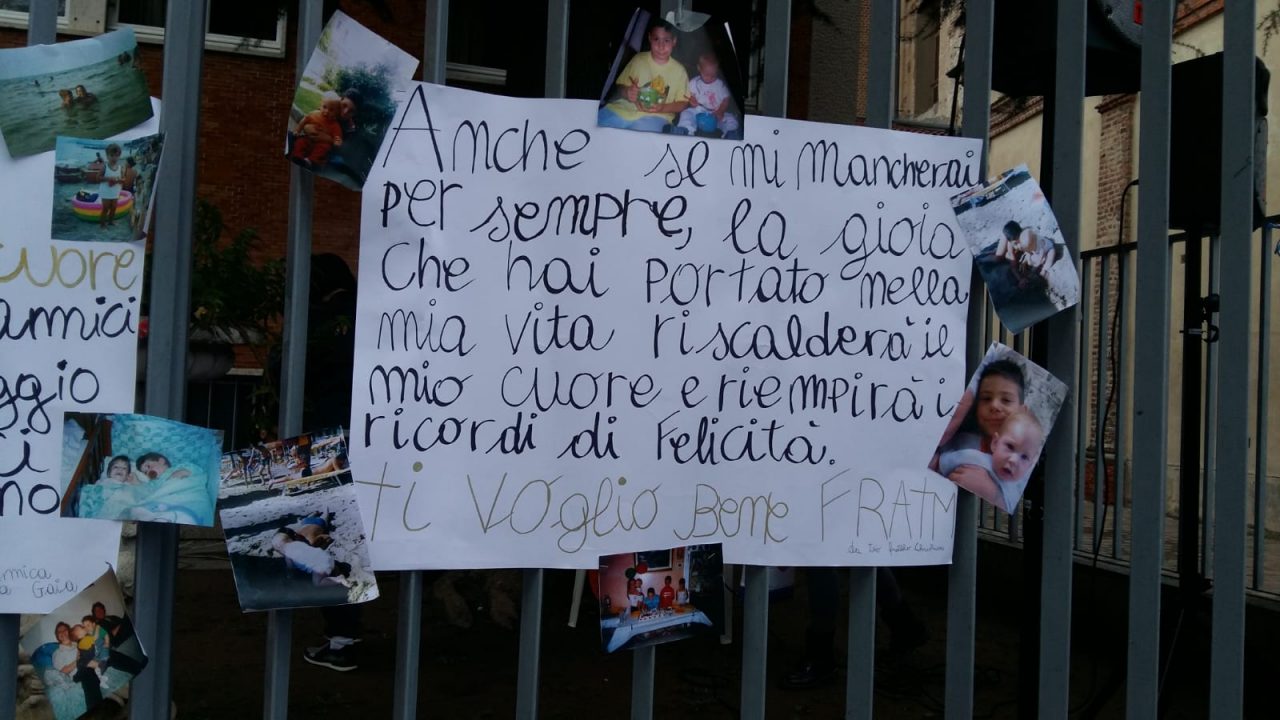 Anche se mi Mancherai
per sempre, la gioia
che hai portato nella
mia vita riscalderà il
mio cuore e riempirà i
ricordi di Felicità.
ti voglio Bene FRATM
cuore
amici
ggio
i
no
mica
Gaia